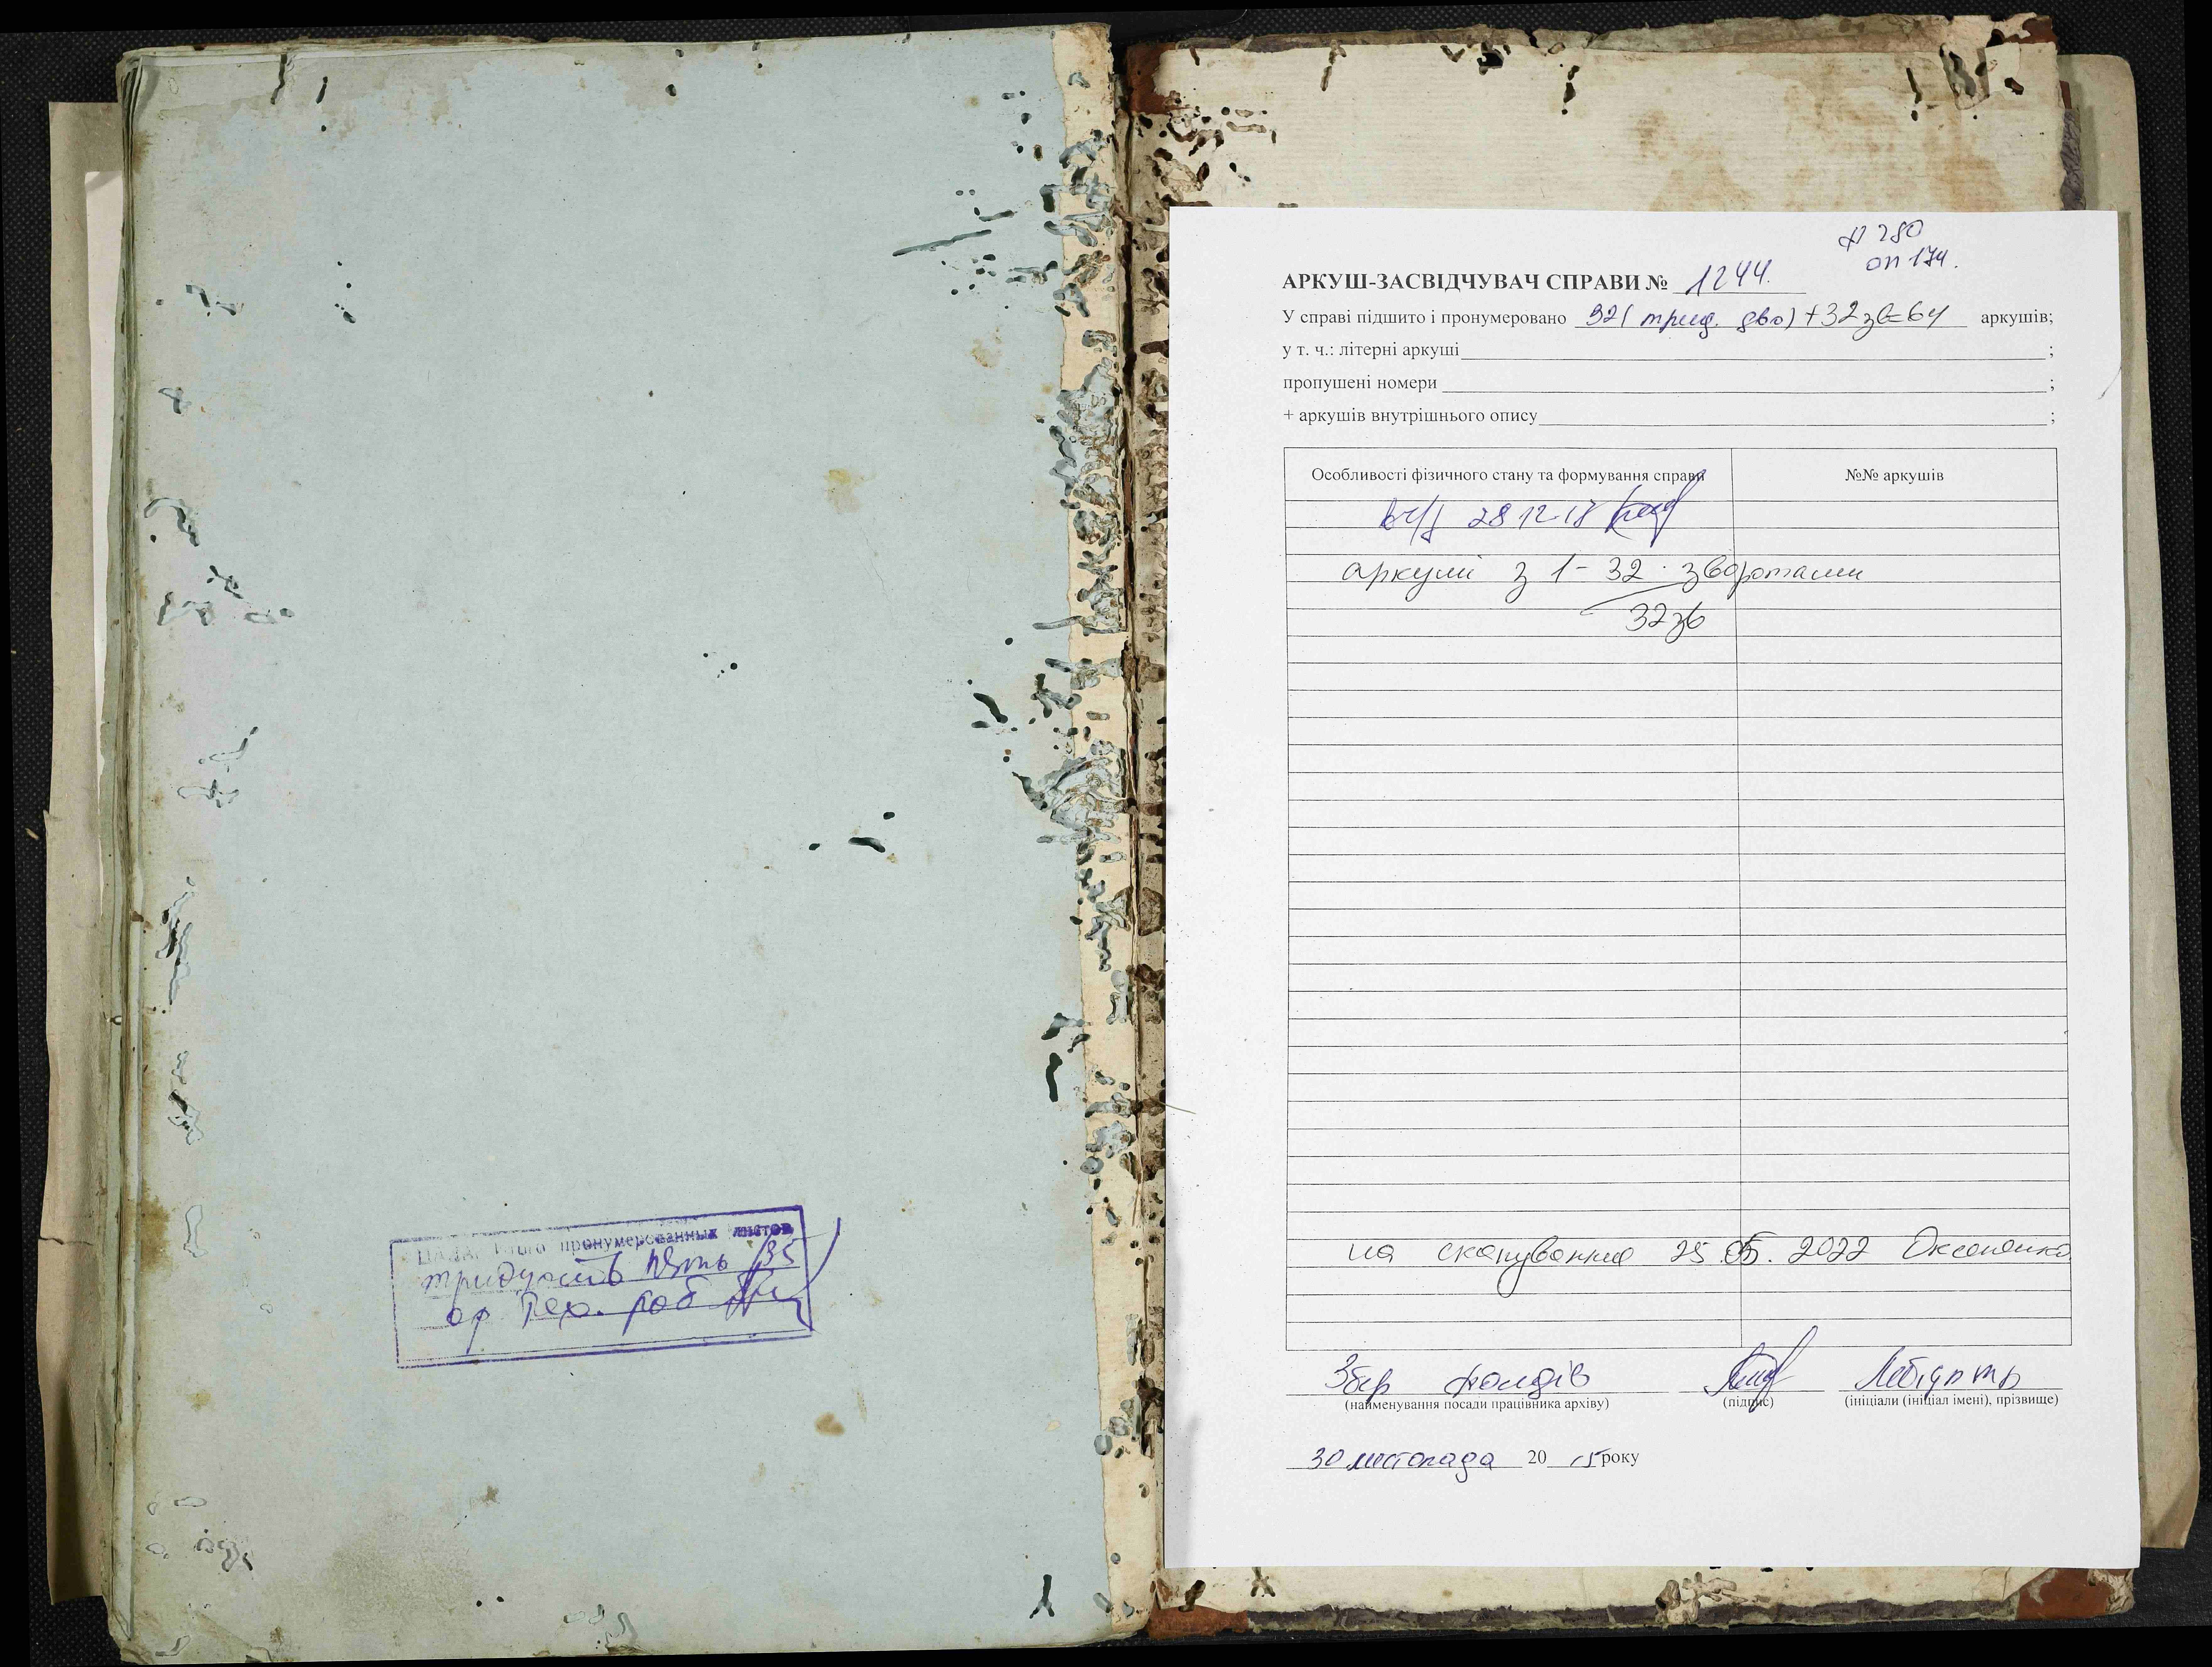 ЦАДА. Всего пронумерованных листов
тридцать пять /35/
Ф 280
оп 174.
АРКУШ-ЗАСВІДЧУВАЧ СПРАВИ № 1244.
У справі підшито і пронумеровано 32 (трид. два) + 32 зв = 64 аркушів;
у т. ч.: літерні аркуші ;
пропущені номери ;
+ аркушів внутрішнього опису ;
Особливості фізичного стану та формування справи
№№ аркушів
28 12 17
аркуші з 1 - 32 зворотами
32 зв
на сканування 25.05.2022
Збер фондів
(найменування посади працівника архіву)
(підпис)
(ініціали (ініціал імені), прізвище)
30 листопада 20 15 року